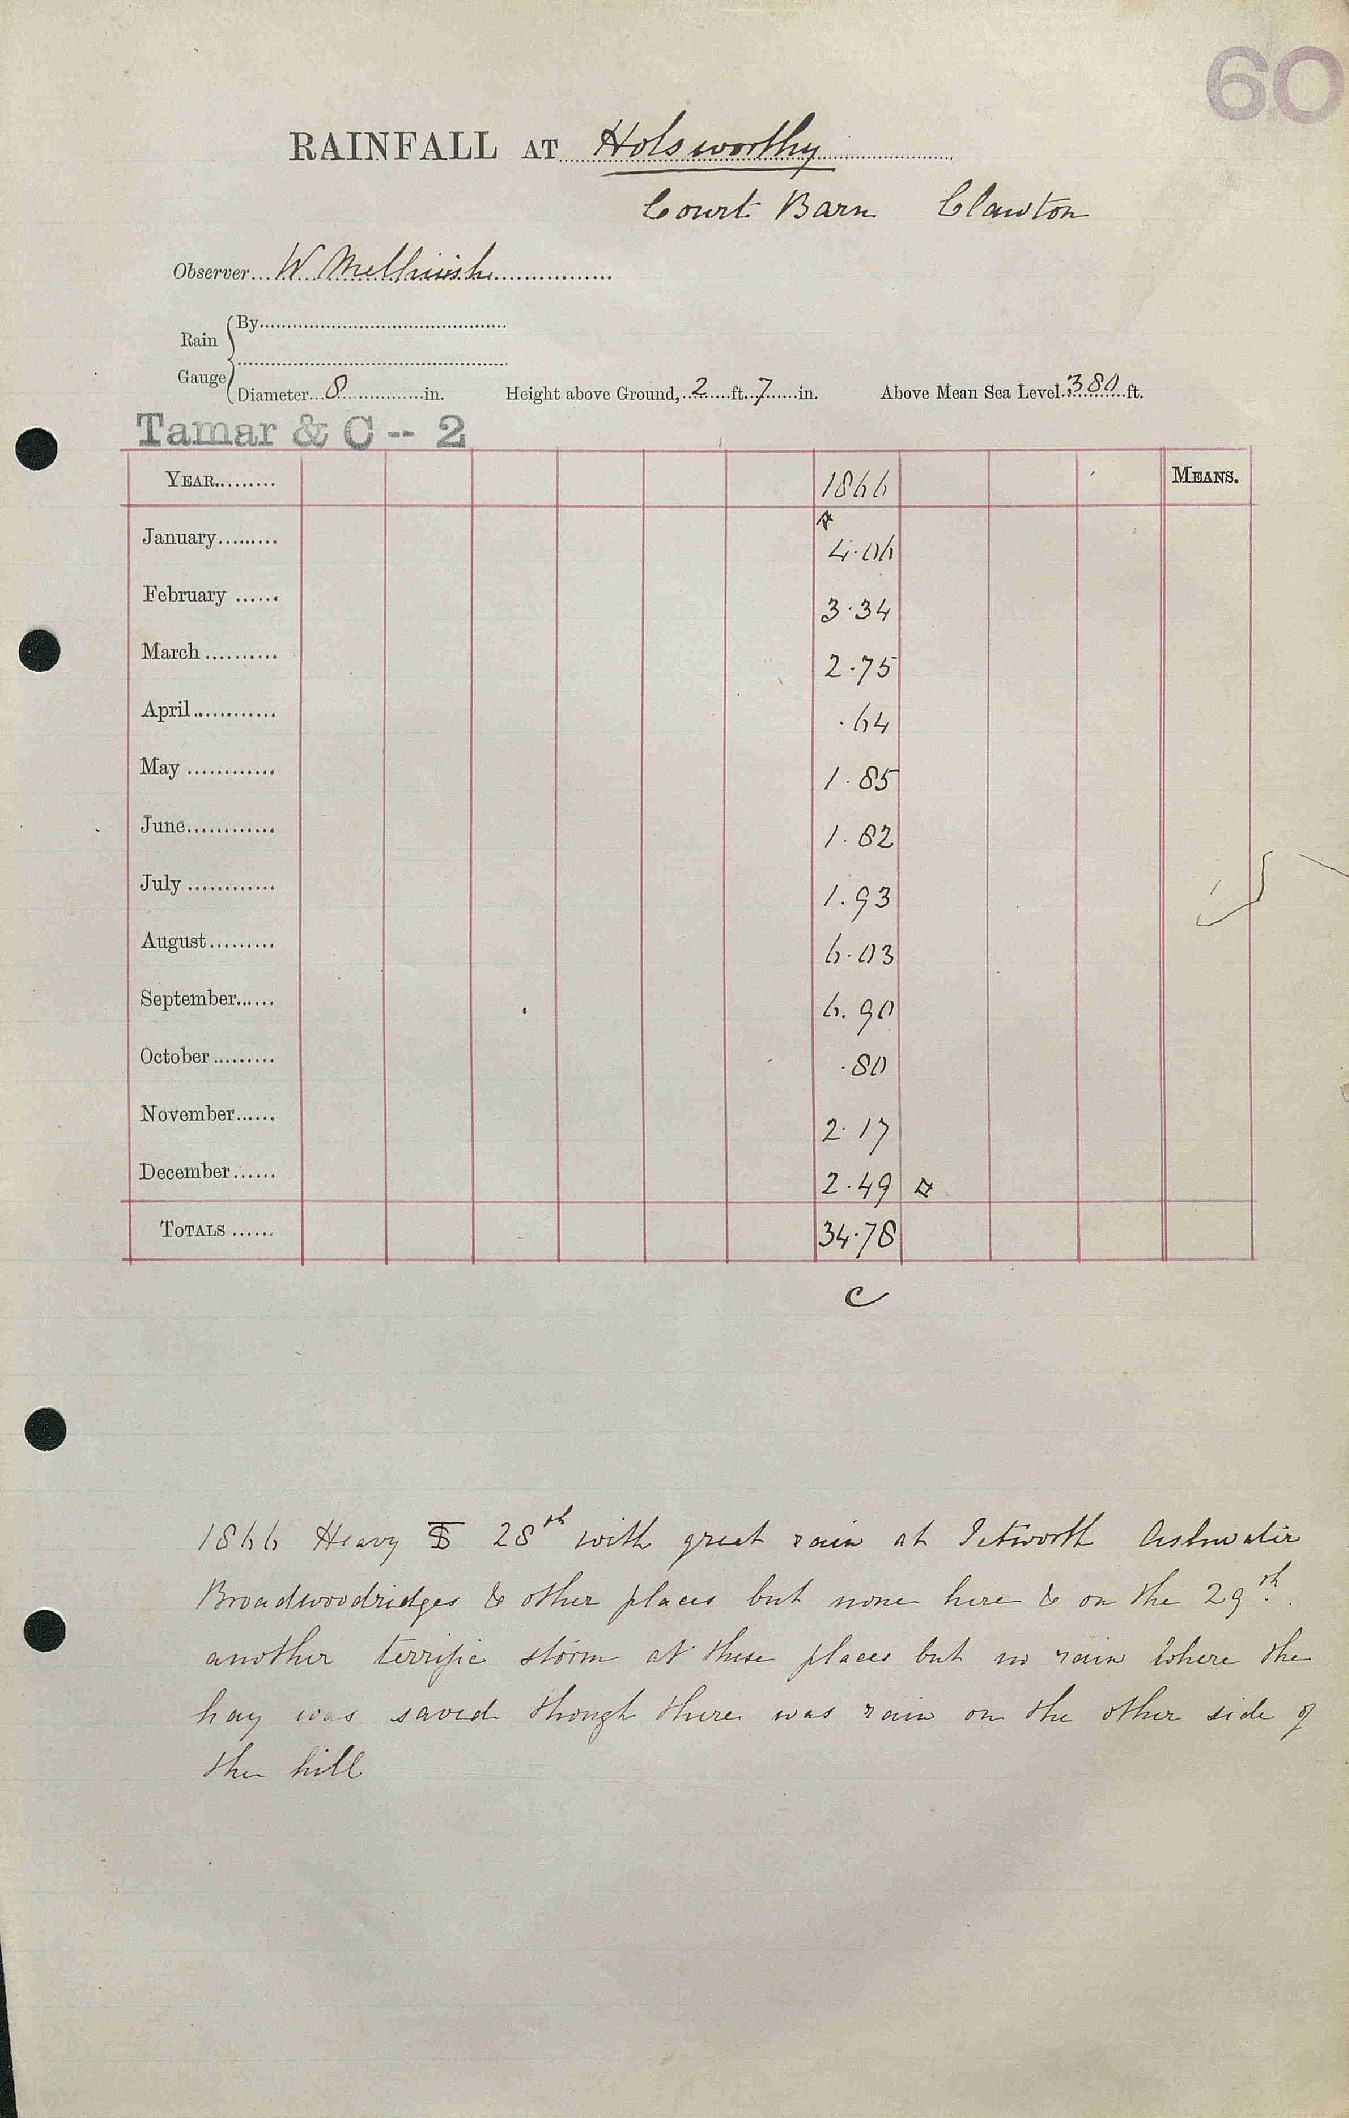 60
RAINFALL AT Holsworthy
Court Barn Clawton
Observer W Melhuish
Rain Gauge { By
Diameter 8 in. Height above Ground, 2 ft. 7 in. Above Mean Sea Level 380 ft.
Tamar & C -- 2
YEAR 1866 MEANS.
January 4.06
February 3.34
March 2.75
April .64
May 1.85
June 1.82
July 1.93
August 6.03
September 6.90
October .80
November 2.17
December 2.49
TOTALS 34.78
C
1866 Heavy 28th with great rain at Ashwater
Broadwoodridges & other places but none here & on the 29th.
another terrific storm at these places but no rain where the
hay was saved though there was rain on the other side of
the hill